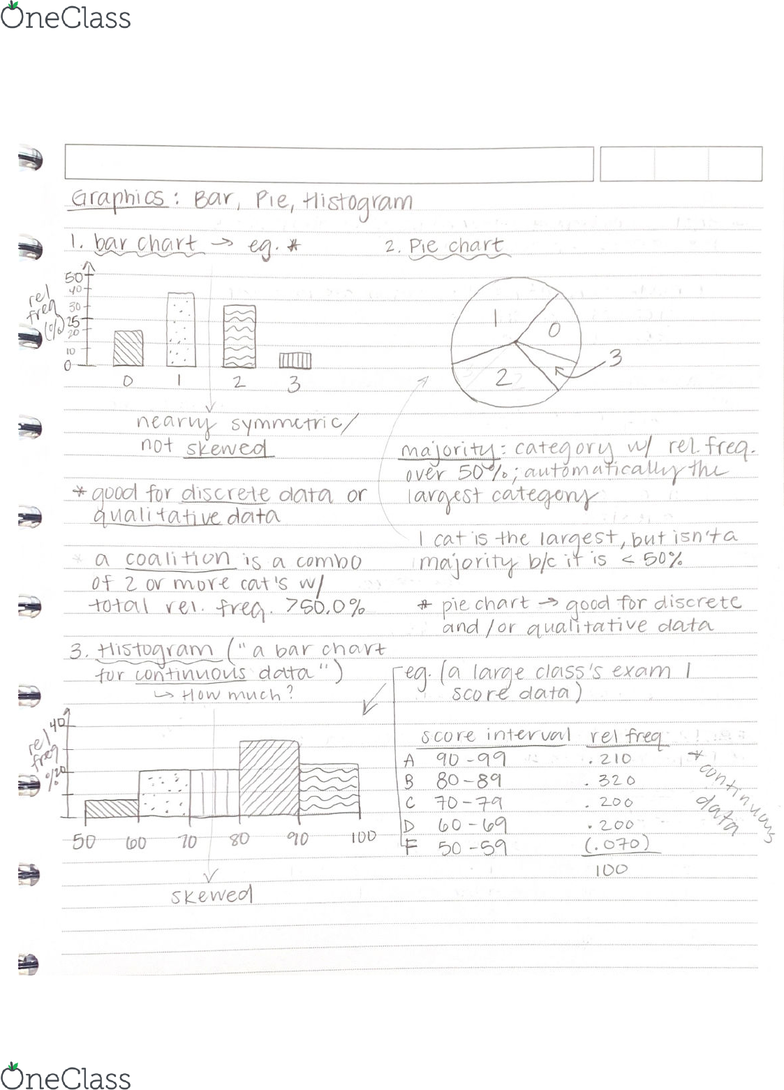 OneClass
Graphics: Bar, Pie, Histogram
1. bar chart → eg. *
rel freq (%)
50
40
30
25
20
10
0
0 1 2 3
nearly symmetric/
not skewed
* good for discrete data or
qualitative data
* a coalition is a combo
of 2 or more cat's w/
total rel. freq. >50.0%
2. Pie chart
1
0
3
2
majority: category w/ rel. freq.
over 50%; automatically the
largest category
1 cat is the largest, but isn't a
majority b/c it is < 50%
* pie chart → good for discrete
and/or qualitative data
3. Histogram ("a bar chart
for continuous data")
↳ How much?
rel freq %
40
20
50 60 70 80 90 100
skewed
eg. (a large class's exam 1
score data)
score interval rel freq
A 90-99 .210
B 80-89 .320
C 70-79 .200
D 60-69 .200
F 50-59 (.070)
100
* continuous
data
OneClass